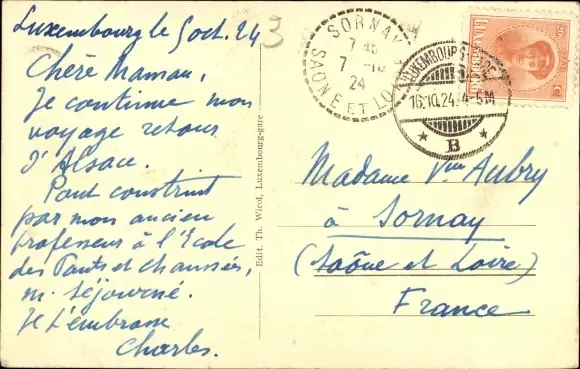 Luxembourg le 5 oct. 24
Chère Maman,
Je continue mon
voyage retour
d'Alsace.
Pont construit
par mon ancien
professeur à l'Ecole
des Ponts et chaussées,
m. Séjourné.
Je t'embrasse
Charles.
Edit. Th. Wirol, Luxembourg-gare
SORNAY
7 -10
24
SAONE ET LOIRE
LUXEMBOURG
24.4-5M
B
Madame Vve Aubry
à Sornay
(Saône et Loire)
France
3